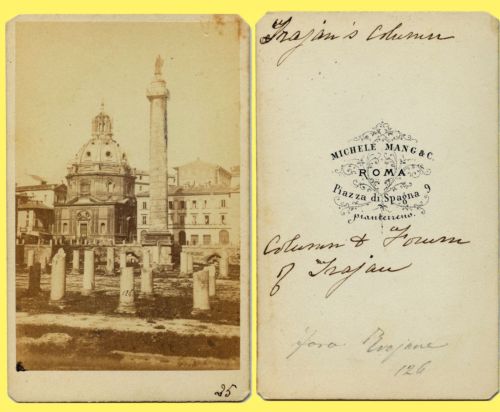 25
Trajan's Column
MICHELE MANG & C.
ROMA
Piazza di Spagna 9
pianterreno.
Column & Forum
of Trajan
Foro Trajano
126